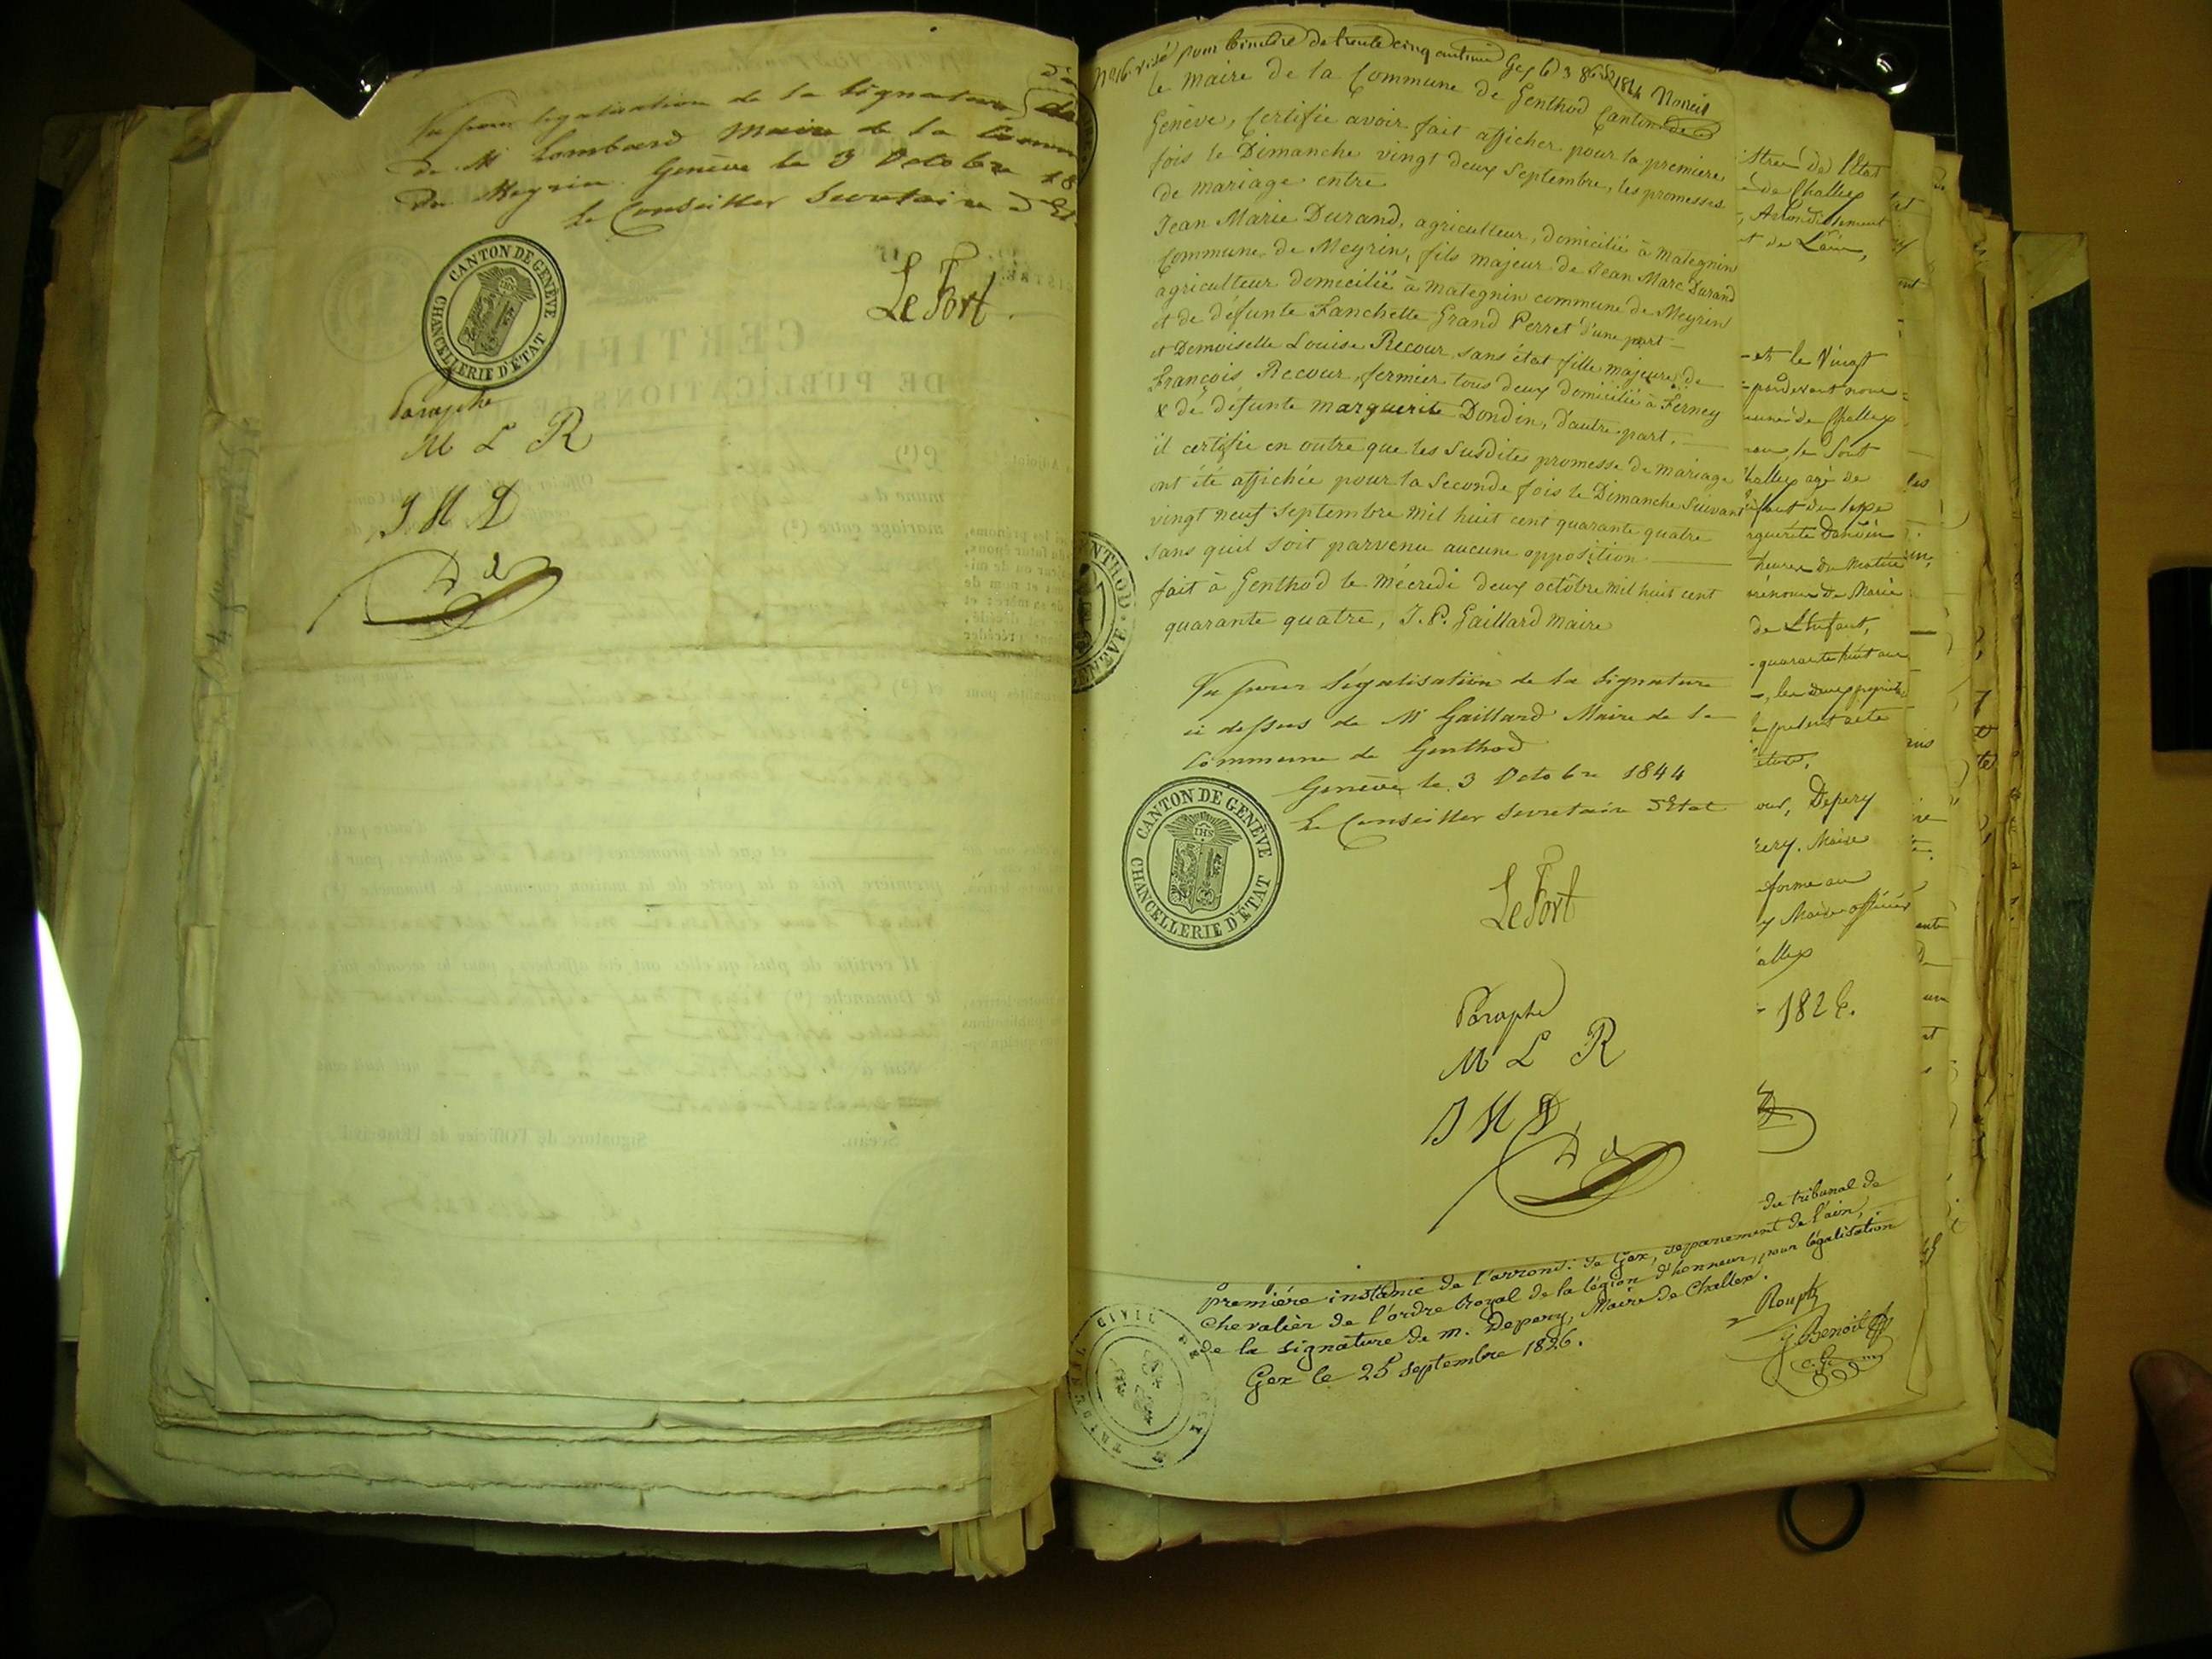 Vu pour légalisation de la signature
de Mr Lombard Maire de la Comm
de Meyrin Genève le 3 Octobre 18
Le Conseiller Secrétaire d'Et
Le Fort
CANTON DE GENÈVE
CHANCELLERIE D'ÉTAT
Paraphe
M L R
J M D
No 16 visé pour timbre de trente cinq centimes Gex le 3 8bre 1844
le maire de la Commune de Genthod Canton de
Genève, Certifie avoir fait afficher pour la premiere
fois le Dimanche vingt deux Septembre, les promesses
de mariage entre
Jean Marie Durand, agriculteur, domicilié à mategnin
Commune de Meyrin, fils majeur de Jean Marc Durand
agriculteur domicilié à mategnin commune de Meyrin
et de défunte Fanchette Grand Perret d'une part
et Demoiselle Louise Recour sans état fille majeure de
François Recour, fermier tous deux domicilié à Ferney
& de défunte Marguerite Dondin, d'autre part.
il certifie en outre que les susdites promesse de mariage
ont été affichée pour la seconde fois le Dimanche suivant
vingt neuf septembre mil huit cent quarante quatre
sans quil soit parvenu aucune opposition
fait à Genthod le mécredi deux octobre mil huit cent
quarante quatre, J. P. Gaillard maire
Vu pour légalisation de la signature
ci dessus de Mr Gaillard Maire de la
Commune de Genthod
Genève le 3 Octobre 1844
Le Conseiller Secrétaire d'Etat
CANTON DE GENÈVE
CHANCELLERIE D'ÉTAT
IHS
Le Fort
Paraphe
M L R
J M D
stres de l'Etat
de Challex
Arrondissement
et de L'ain,
et le Vingt
pardevant nous
de Challex
Challex agé de
enfant du sexe
rguerite Dandin
heures du matin
prénoms de Marie
de L'Enfant,
quarante huit ans
le présent acte
our, Depery
ery. Maire
forme au
y Maire officier
allex
1826.
du tribunal de
première instance de l'arrond. de Gex, departement de l'ain,
Chevalier de l'ordre Royal de la légion d'honneur, pour légalisation
de la signature de m. Depery, Maire de Challex.
Gex le 25 septembre 1826.
Rouph
G Benoit
TRIBUNAL CIVIL DE GEX